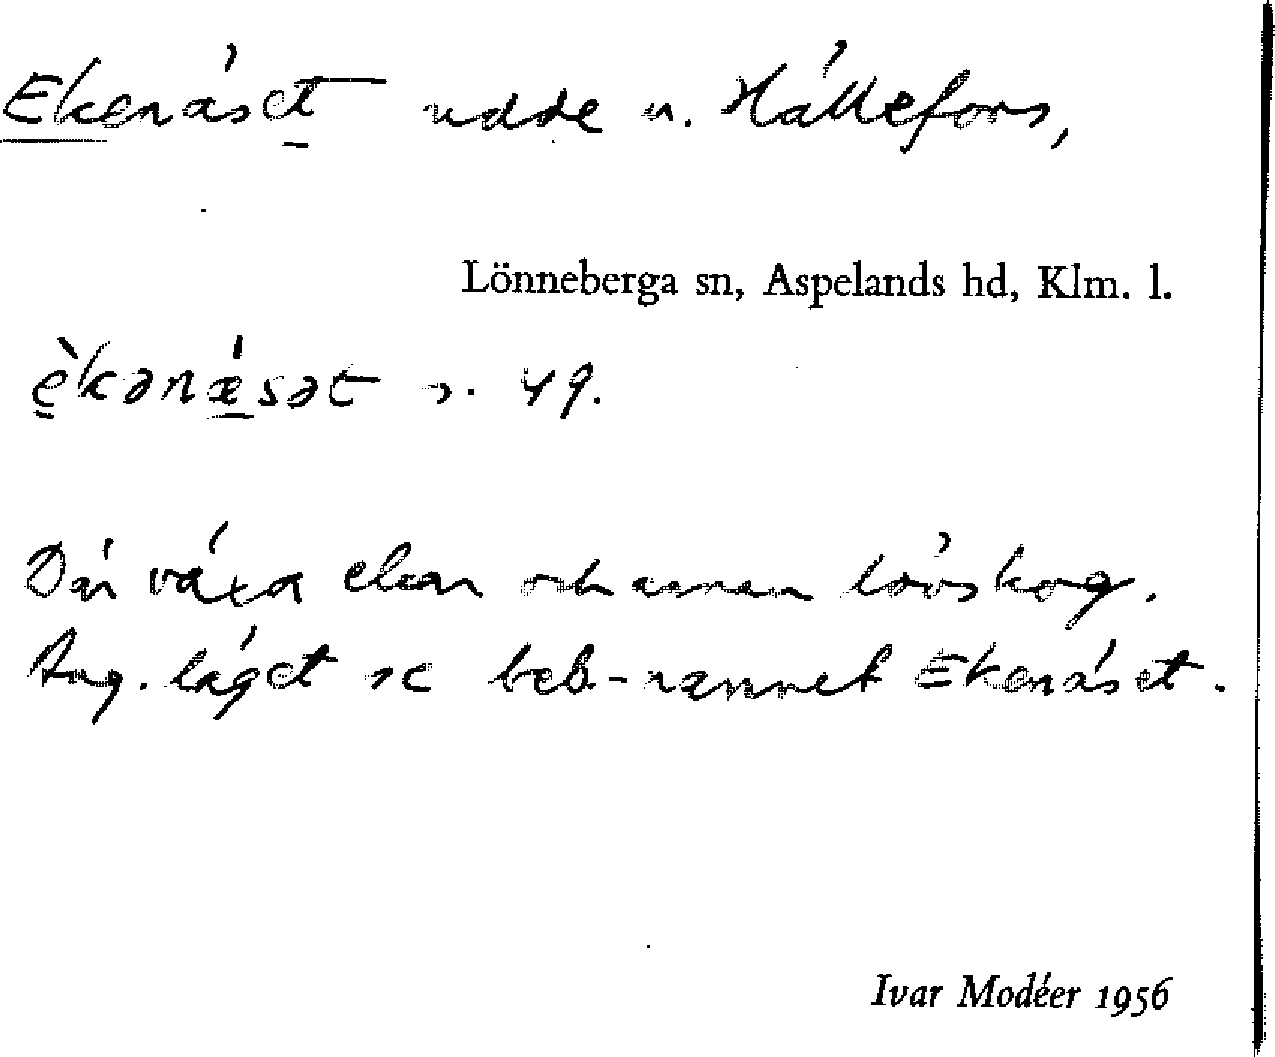 Ekenäset udde u. Hällefors,
Lönneberga sn, Aspelands hd, Klm. l.
èkənǽsət 49.
Där växa ekar och annan lövskog.
Ang. läget se beb-namnet Ekenäset.
Ivar Modéer 1956